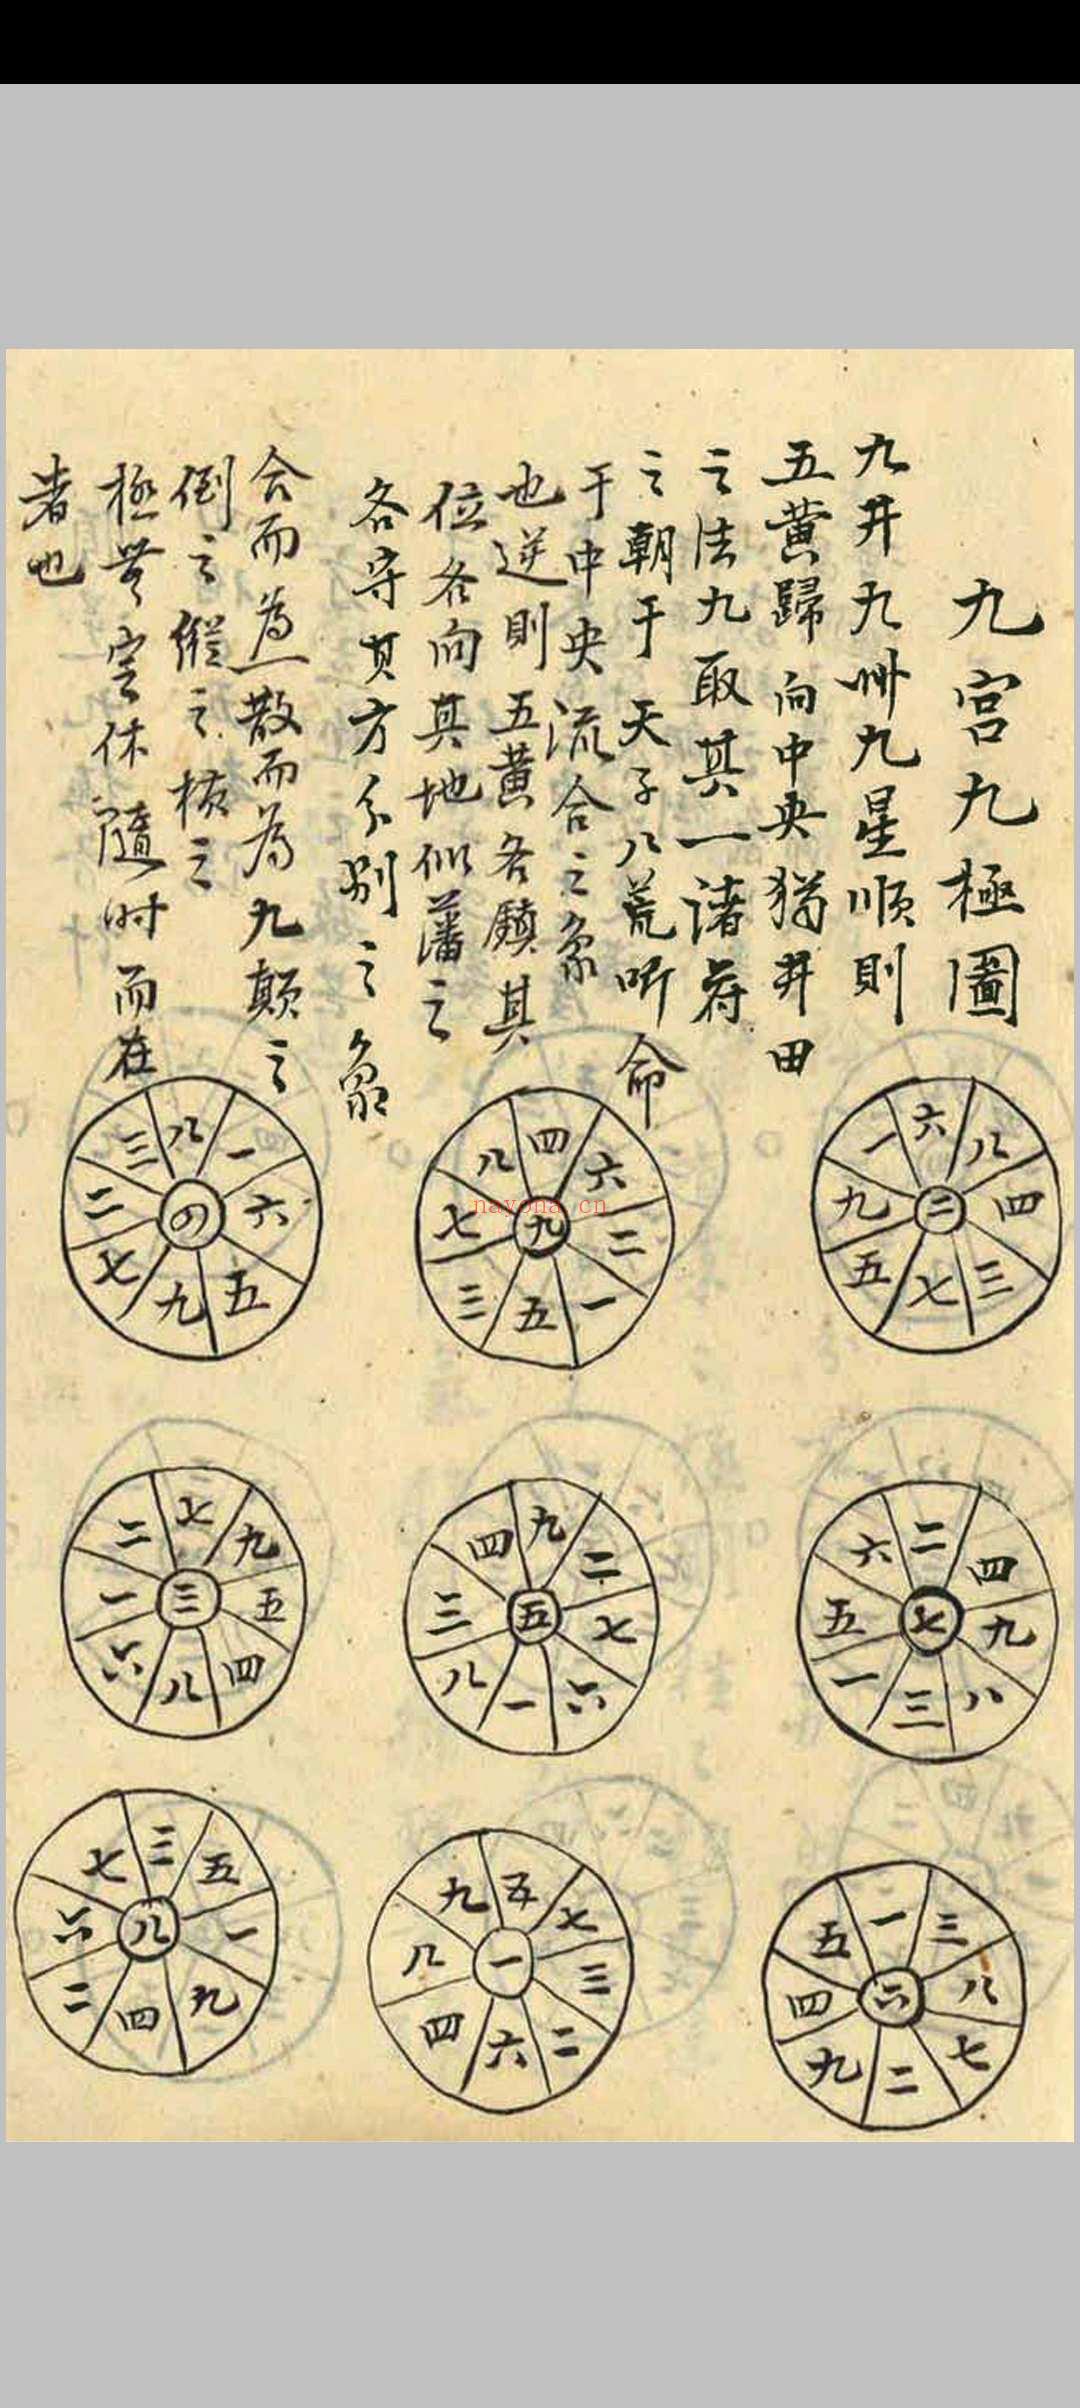 九宫九極圖
九井九州九星順則
五黄歸向中央猶井田
之法九取其一諸侯
之朝于天子八荒听命
于中央流合之象
也逆則五黄各鎮其
位各向其地似藩之
各守其方分别之象
合而為一散而為九顛之
倒之縱之横之
極無定休隨时而在
者也
六
一 八
九 二 四
五 三
七
四
八 六
七 九 二
三 一
五
八
三 一
二 四 六
七 五
九
二
六 四
五 七 九
一 八
三
九
四 二
三 五 七
八 六
一
七
二 九
一 三 五
六 四
八
一
五 三
四 六 八
九 七
二
五
九 七
八 一 三
四 二
六
三
七 五
六 八 一
二 九
四
nayona.cn